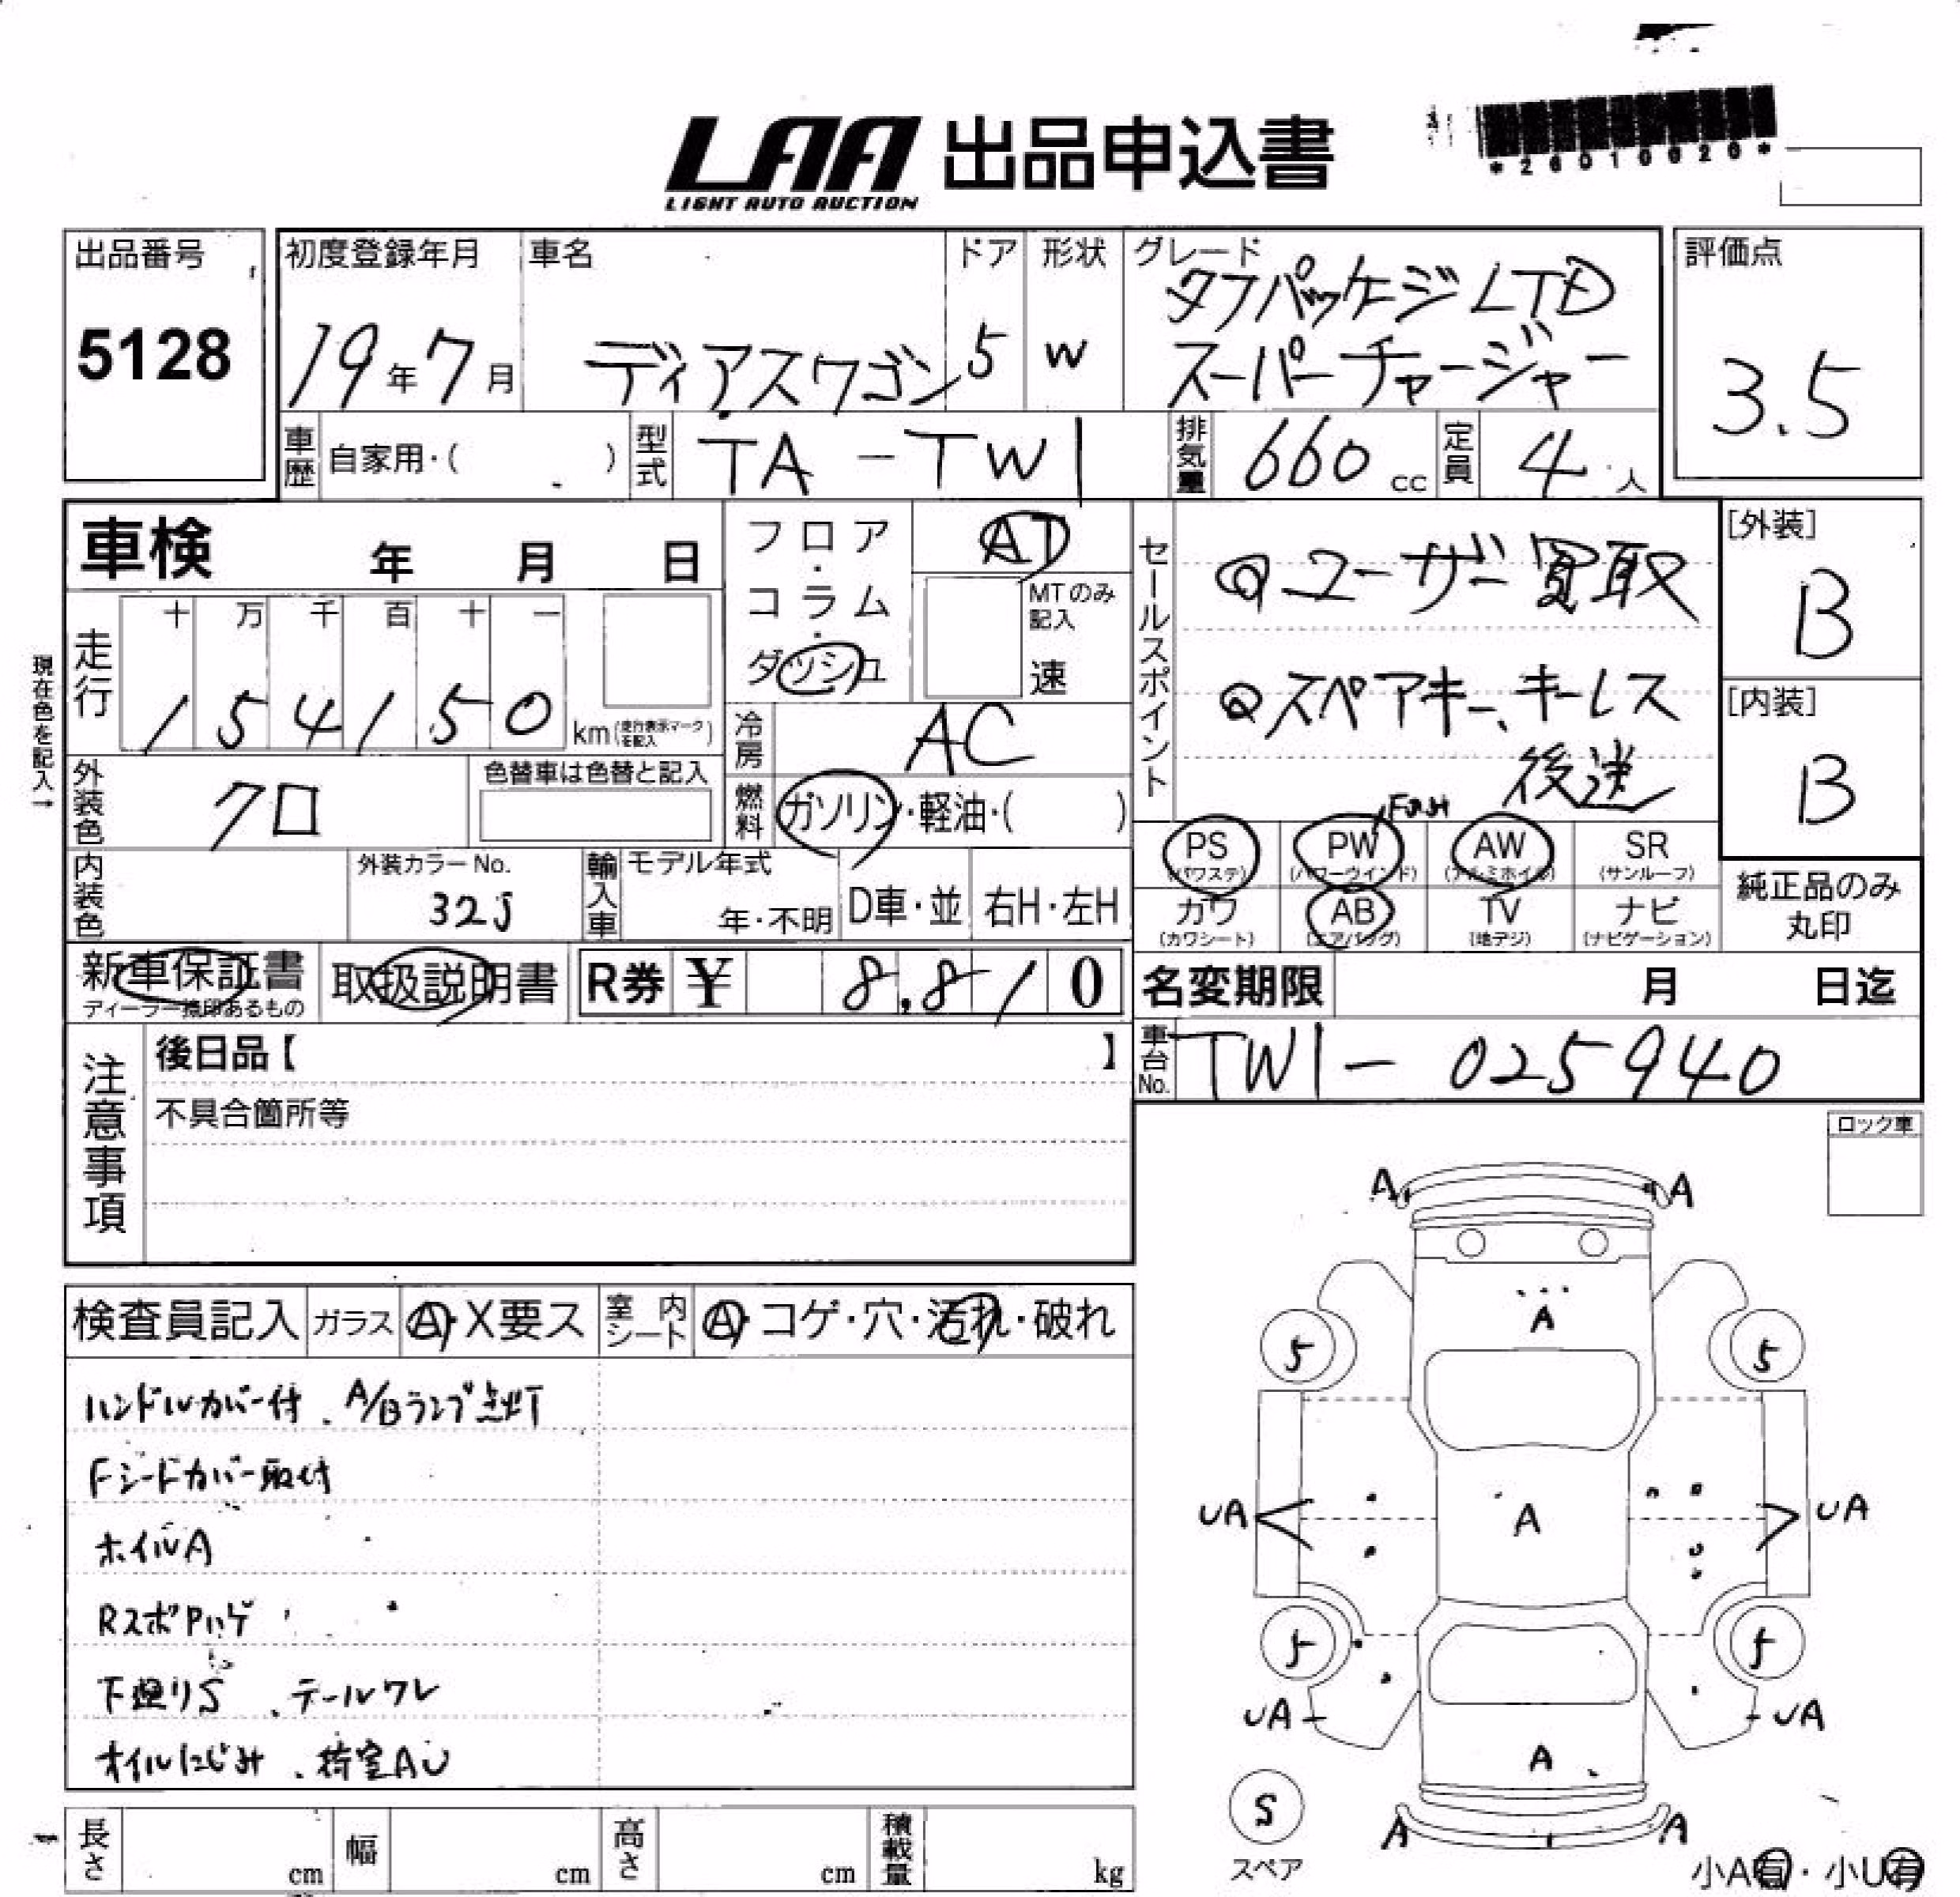 LAA 出品申込書
LIGHT AUTO AUCTION
*26010020*
出品番号
5128
初度登録年月
19年7月
車名
ディアスワゴン
ドア
5
形状
W
グレード
タフパッケージLTD
スーパーチャージャー
評価点
3.5
車歴 自家用・( )
型式 TA-TW1
排気量 660 cc
定員 4人
車検 年 月 日
フロア・コラム・ダッシュ
AT
MTのみ記入
速
現在色を記入→
走行
十 万 千 百 十 一
154150 km (走行表示マークを記入)
冷房 AC
外装色 クロ
色替車は色替と記入
燃料 ガソリン・軽油・( )
内装色
外装カラーNo.
32J
輸入車
モデル年式
年・不明
D車・並
右H・左H
新車保証書
ディーラー捺印あるもの
取扱説明書
R券 ¥ 8,810
セールスポイント
ユーザー買取
スペアキー、キーレス
後送
[外装]
B
[内装]
B
PS (パワステ)
PW (パワーウインド)
AW (アルミホイル)
SR (サンルーフ)
カワ (カワシート)
AB (エアバッグ)
TV (地デジ)
ナビ (ナビゲーション)
純正品のみ
丸印
名変期限 月 日迄
車台No. TW1-025940
注意事項
後日品【 】
不具合箇所等
ロック車
検査員記入
ガラス A・X要ス
室内シート A・コゲ・穴・汚れ・破れ
ハンドルカバー付、A/Bランプ点灯
Fシートカバー取付
ホイルA
RスポPハゲ
下廻りS、テールワレ
オイルにじみ、荷室AU
A A
A
5 5
UA A UA
5 5
UA UA
A
S
スペア
A A
小A有・小U有
長さ cm
幅 cm
高さ cm
積載量 kg